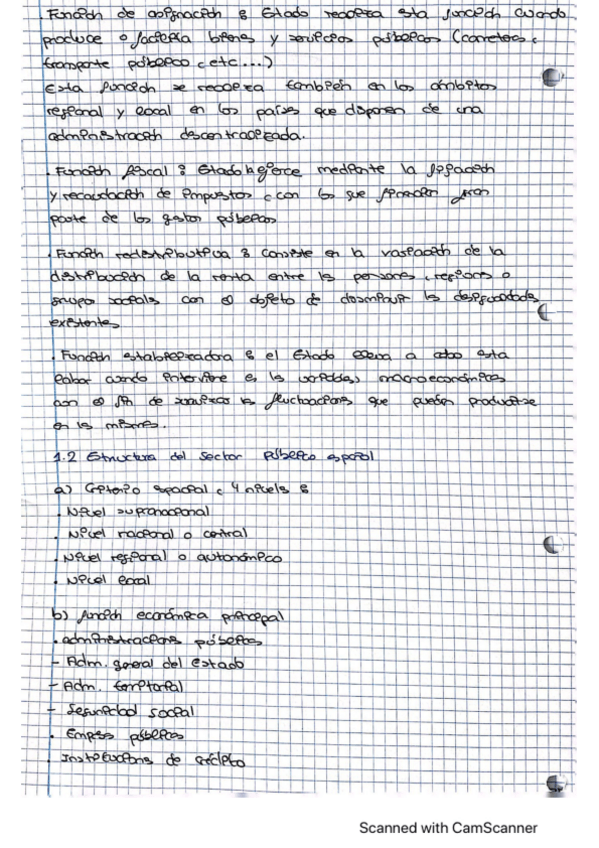 . Función de asignación : Estado realiza esta función cuando
produce o facilita bienes y servicios públicos (carreteras,
transporte público, etc...)
Esta función se realiza también en los ámbitos
regional y local en los países que disponen de una
administración descentralizada.
. Función fiscal : Estado la ejerce mediante la fijación
y recaudación de impuestos, con los que financian gran
parte de los gastos públicos
. Función redistributiva : consiste en la variación de la
distribución de la renta entre las personas, regiones o
grupos sociales con el objeto de disminuir las desigualdades
existentes
. Función estabilizadora : el Estado lleva a cabo esta
labor cuando interviene en las variables macroeconómicas
con el fin de suavizar las fluctuaciones que puedan producirse
en las mismas.
1.2 Estructura del sector público español
a) Criterio espacial, 4 niveles :
. Nivel supranacional
. Nivel nacional o central
. Nivel regional o autonómico
. Nivel local
b) función económica principal
. administraciones públicas
- Adm. general del estado
- Adm. territorial
- Seguridad social
. Empresas públicas
. Instituciones de crédito
Scanned with CamScanner